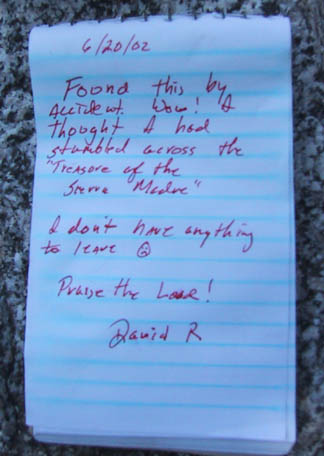 6/20/02
Found this by
accident. Wow! I
thought I had
stumbled across the
"Treasure of the
Sierra Madre"
I don't have anything
to leave ☹
Praise the Lord!
David R